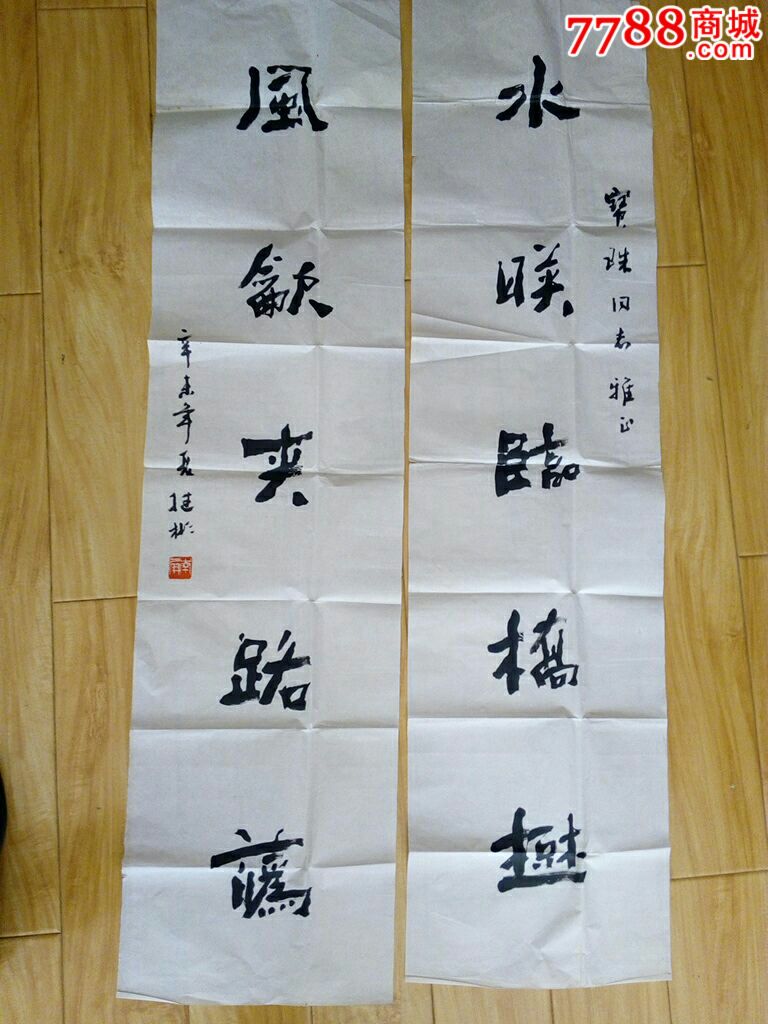 7788商城
.com
寶珠同志雅正
水映臨橋樹
風龡夾路蘤
辛未年夏